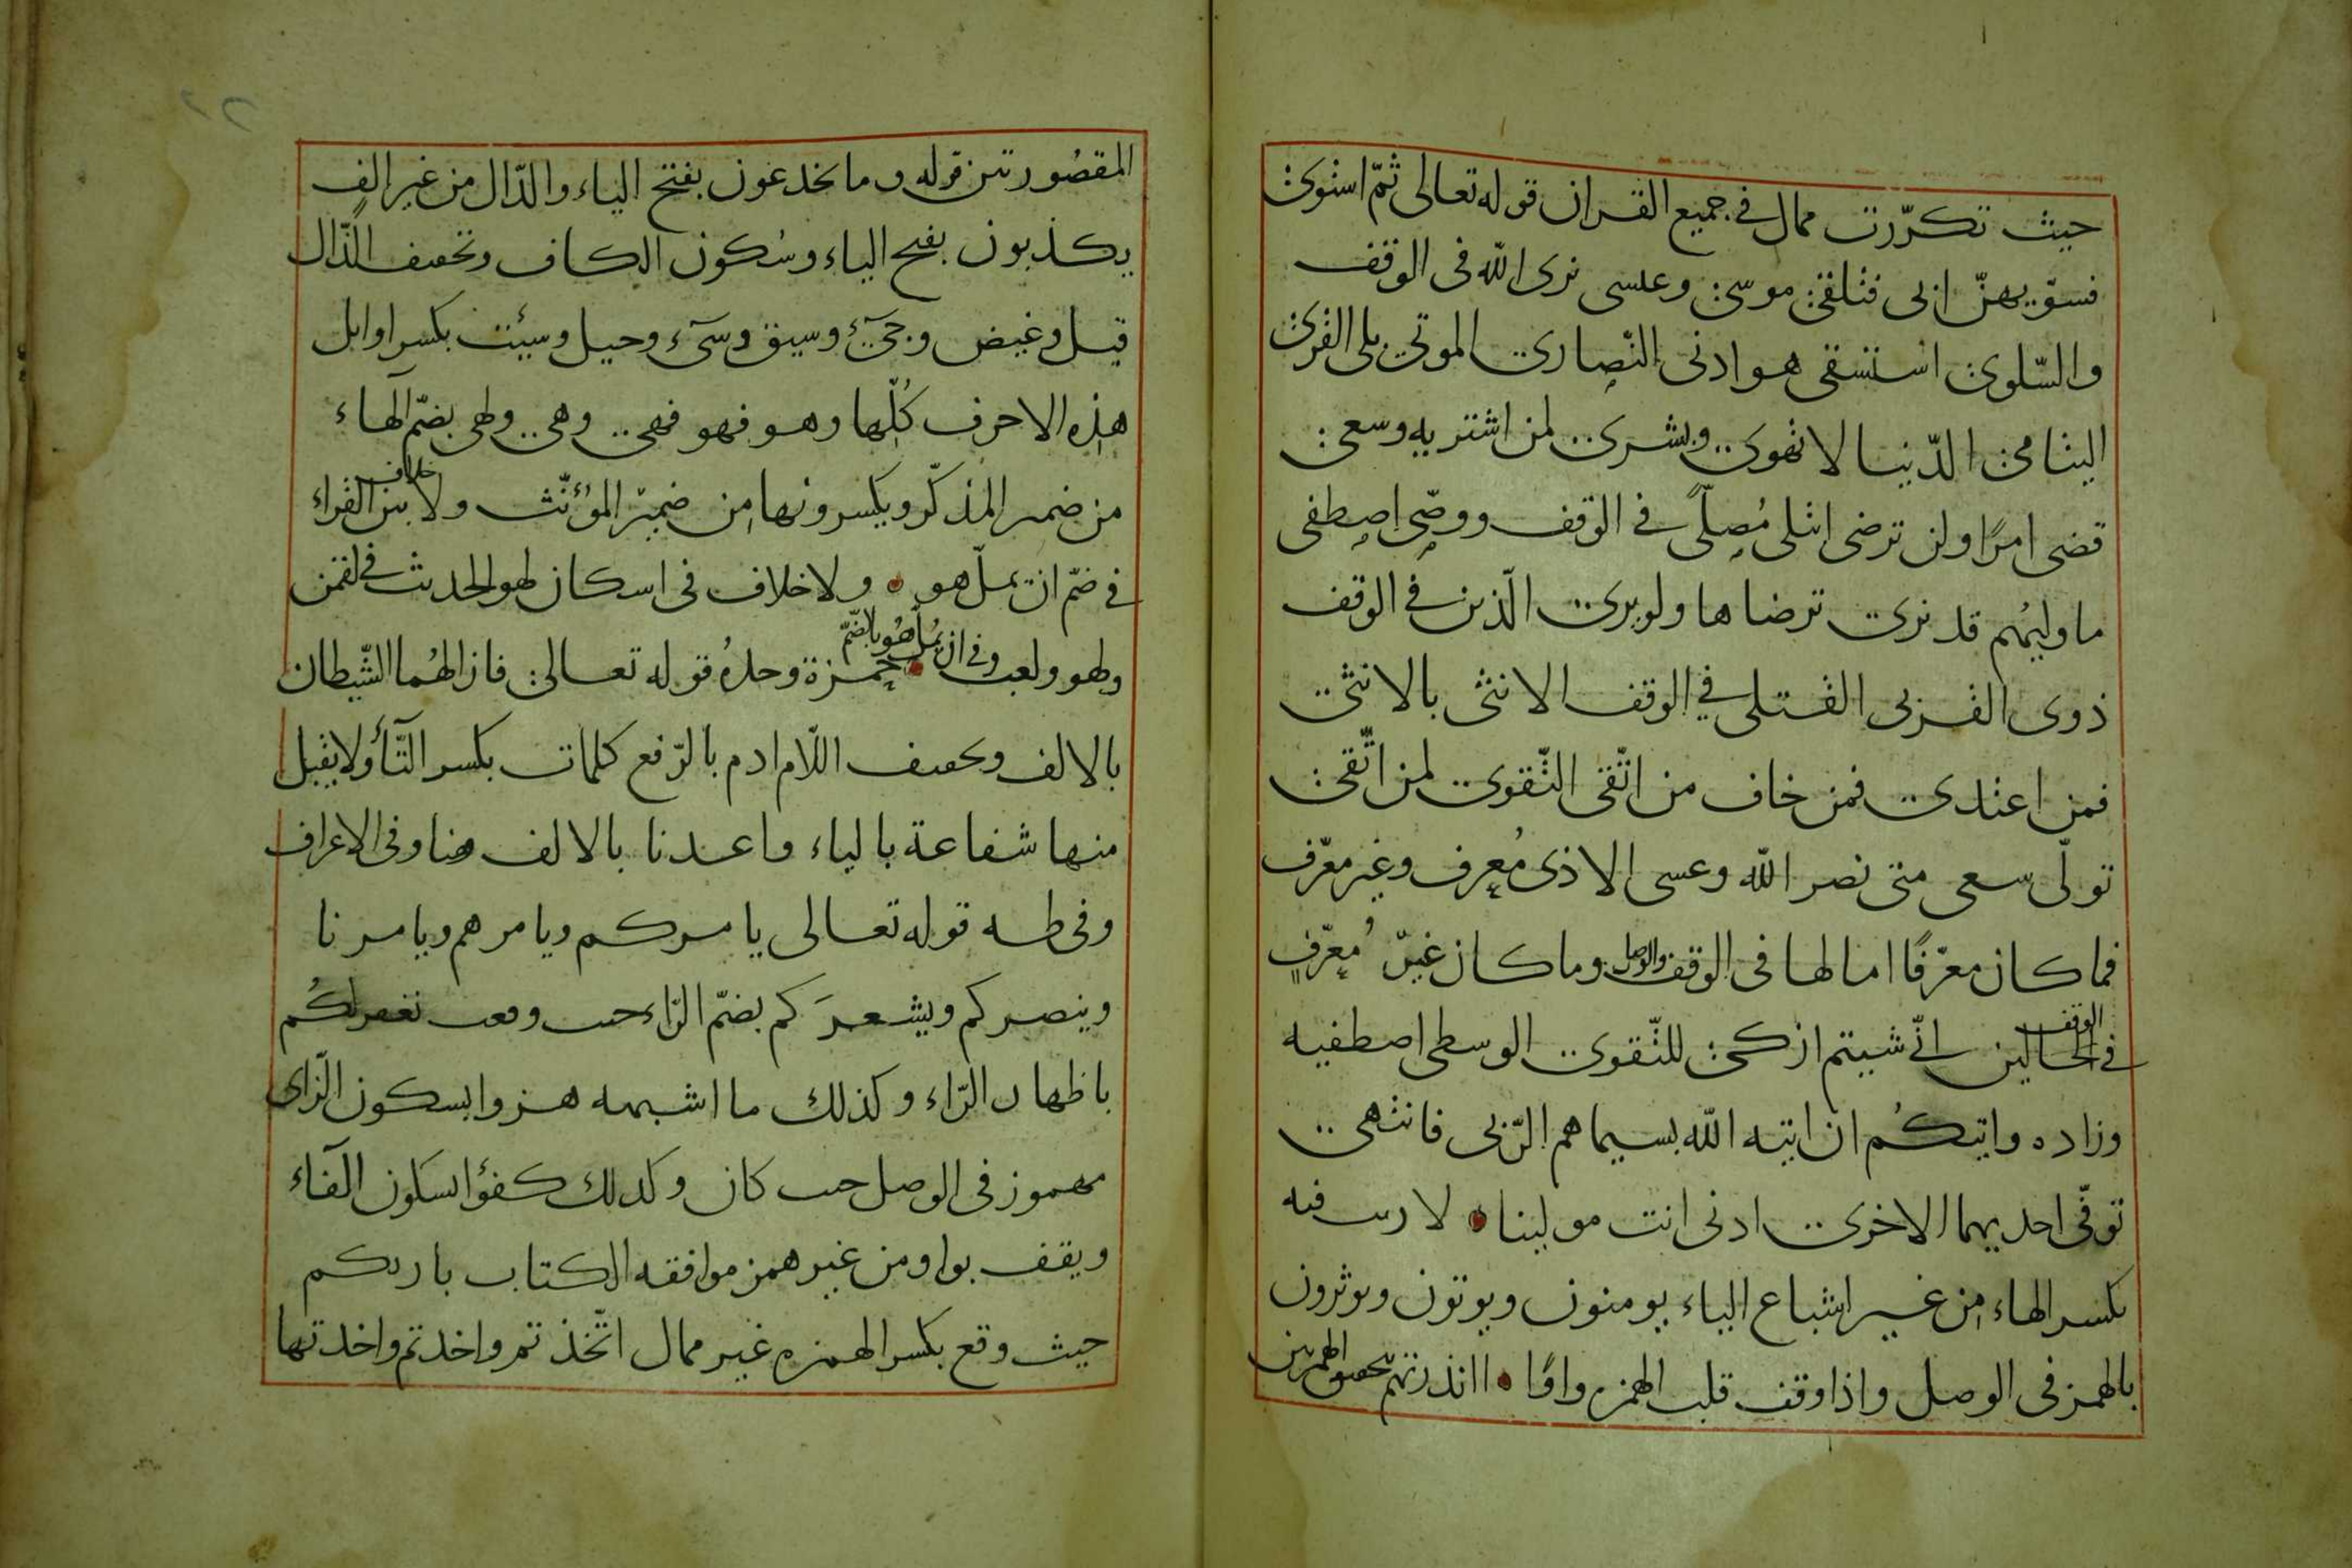 حيث تكرّرت ممال في جميع القران قوله تعالى ثمّ استوى
فسوّيهنّ ابى فتلقى موسى وعلسى نرى الله فى الوقف
والسّلوى استسقى هو ادنى النّصارى الموتى بلى القربى
اليتامى الدّنيا لا تهوى وبشرى لمن اشتريه وسعى
قضى امرًا ولن ترضى ابتلى مُصلًّى في الوقف ووصّى اصطفى
ما وليهُم قد نرى ترضاها ولو يرى الّذين في الوقف
ذوى القربى القتلى في الوقف الانثى بالانثى
فمن اعتدى فمن خاف من اتّقى التّقوى لمن اتّقى
تولّى سعى متى نصر الله وعسى الاذى مُعرف وغير معرّف
فما كان معرّفًا امالها فى الوقف والوصل وما كان غيرّ مُعرّفٍ
الوقف
في الحالين انّى شيتم ازكى للتّقوى الوسطى اصطفيه
وزاده واتيكُم ان اتيه الله بسيماهم الرّبى فانتهى
توفّى احديهما الاخرى ادنى انت مولينا لا ريب فيه
بكسر الهاء من غير اشباع الياء يومنون ويوتون ويوثرون
بالهمز فى الوصل واذا وقف قلب الهمزه واوًا اانذرتهم بتحقيق الهمزتين
المقصورتين قوله وما يخدعون بفتح الياء والدّال من غير الفٍ
يكذبون بفتح الياء وسُكون الكاف وتخفيف الذّال
قيل وغيض وجىٓءَ وسيق وسىٓء وحيل وسيئت بكسر اوايل
هذه الاحرف كُلّها وهو فهو فهى وهى ولهى بضمّ الهاء
خلاف
من ضمير المذكّر ويكسرونها من ضمير المؤنّث ولا بين القراء
في ضمّ ان يملّ هو ولا خلاف فى اسكان لهو الحديث في لقمن
وفي ان يُملّ هُو بالضمّ
ولهو ولعب حمزة وحدهُ قوله تعالى فازالهُما الشّيطان
بالالف وتخفيف اللّام ادم بالرّفع كلمات بكسر التّاء ولا يقبل
منها شفاعة بالياء واعدنا بالالف هنا وفى الاعراف
وفى طه قوله تعالى يامركم ويامرهم ويامرنا
وينصركم ويشعركم بضمّ الرّاء حيث وقعت نغفر لكُم
باظهار الرّاء وكذلك ما اشبهه هزوا بسكون الزّاى
مهموز فى الوصل حيث كان وكذلك كفؤا بسكون الفاء
ويقف بواو من غير همز موافقه الكتاب باربكم
حيث وقع بكسر الهمزه غير ممال اتّخذتم واخذتم واخذتها